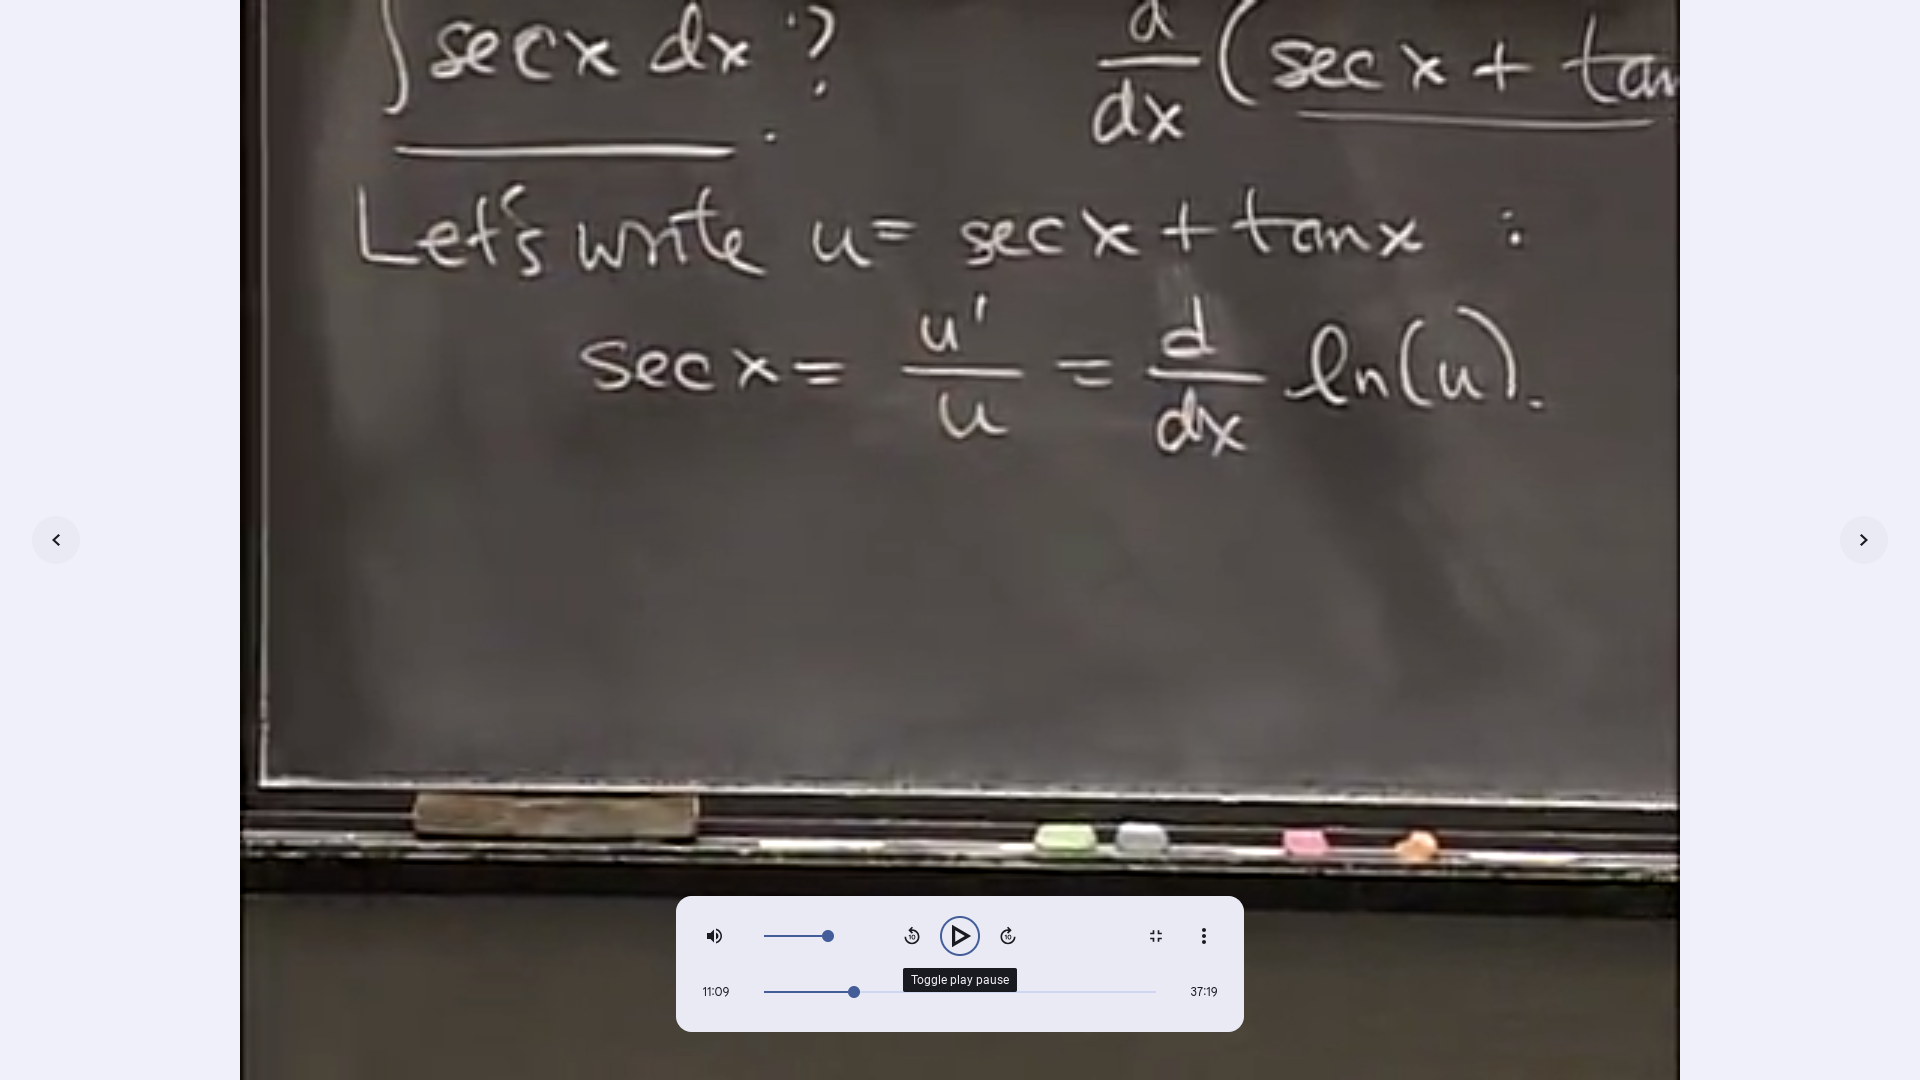 ∫ sec x dx ?
d/dx (sec x + tan
Let's write u = sec x + tan x :
sec x = u'/u = d/dx ln(u).
10
10
Toggle play pause
11:09
37:19